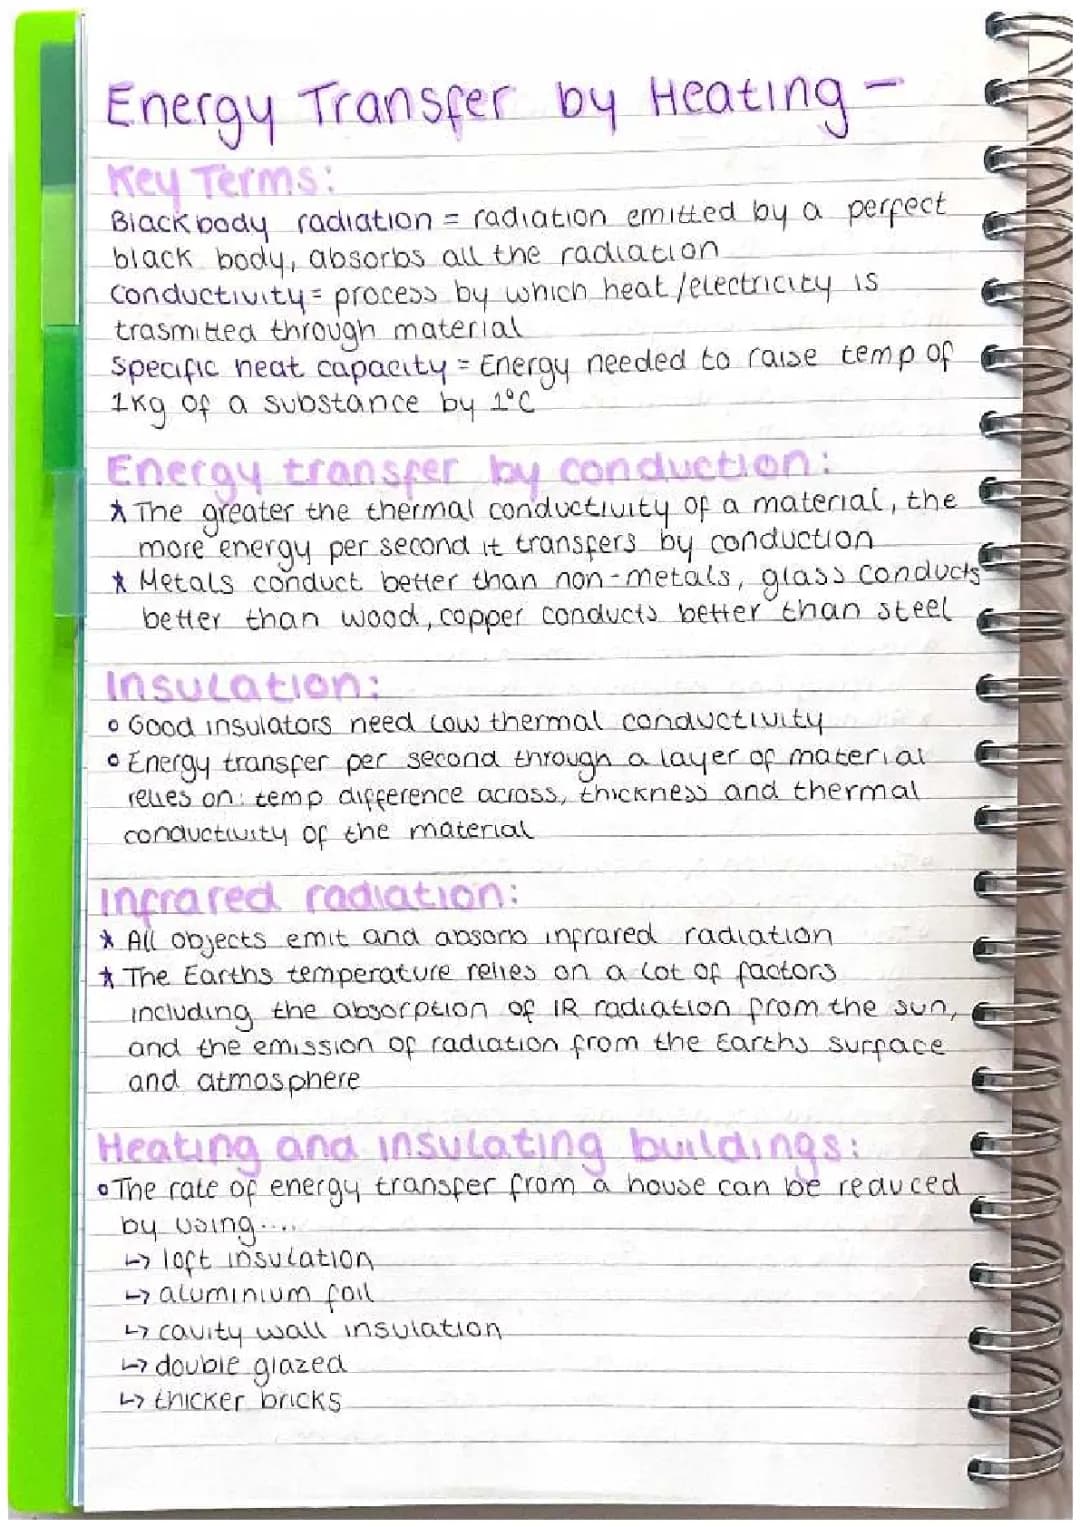 Energy Transfer by Heating -
Key Terms:
Blackbody radiation = radiation emitted by a perfect
black body, absorbs all the radiation
Conductivity = process by which heat/electricity is
trasmitted through material
Specific heat capacity = Energy needed to raise temp of
1kg of a substance by 1°C
Energy transfer by conduction:
* The greater the thermal conductivity of a material, the
more energy per second it transfers by conduction
* Metals conduct better than non-metals, glass conducts
better than wood, copper conducts better than steel
Insulation:
o Good insulators need low thermal conductivity
o Energy transfer per second through a layer of material
relies on: temp difference across, thickness and thermal
conductivity of the material
Infrared radiation:
* All objects emit and absorb infrared radiation
* The Earths temperature relies on a lot of factors
including the absorption of IR radiation from the sun,
and the emission of radiation from the Earths surface
and atmosphere
Heating and insulating buildings:
o The rate of energy transfer from a house can be reduced
by using....
↳ loft insulation
↳ aluminium foil
↳ cavity wall insulation
↳ double glazed
↳ thicker bricks